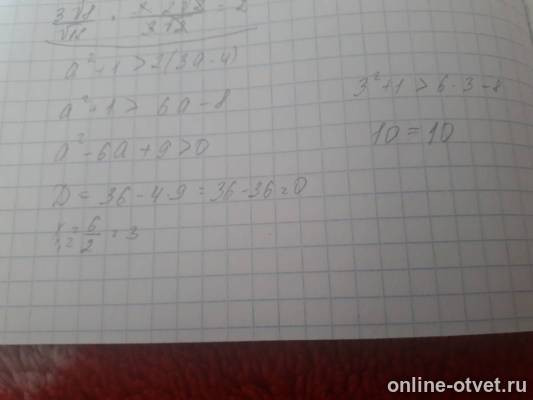 a² + 1 > 2(3a - 4)
a² + 1 > 6a - 8
a² - 6a + 9 > 0
D = 36 - 4·9 = 36 - 36 = 0
= 6/2 = 3
3² + 1 > 6·3 - 8
10 = 10
online-otvet.ru